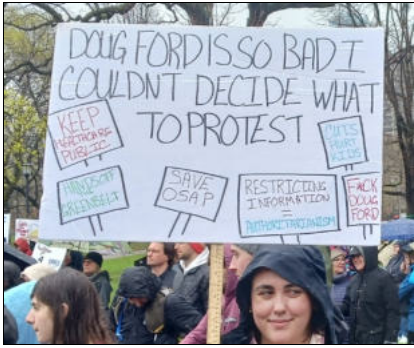 DOUG FORD IS SO BAD I
COULDNT DECIDE WHAT
TO PROTEST
KEEP
HEALTHCARE
PUBLIC
CUTS
HURT
KIDS
HANDS OFF
GREENBELT
SAVE
OSAP
RESTRICTING
INFORMATION
=
AUTHORITARIANISM
F*CK
DOUG
FORD